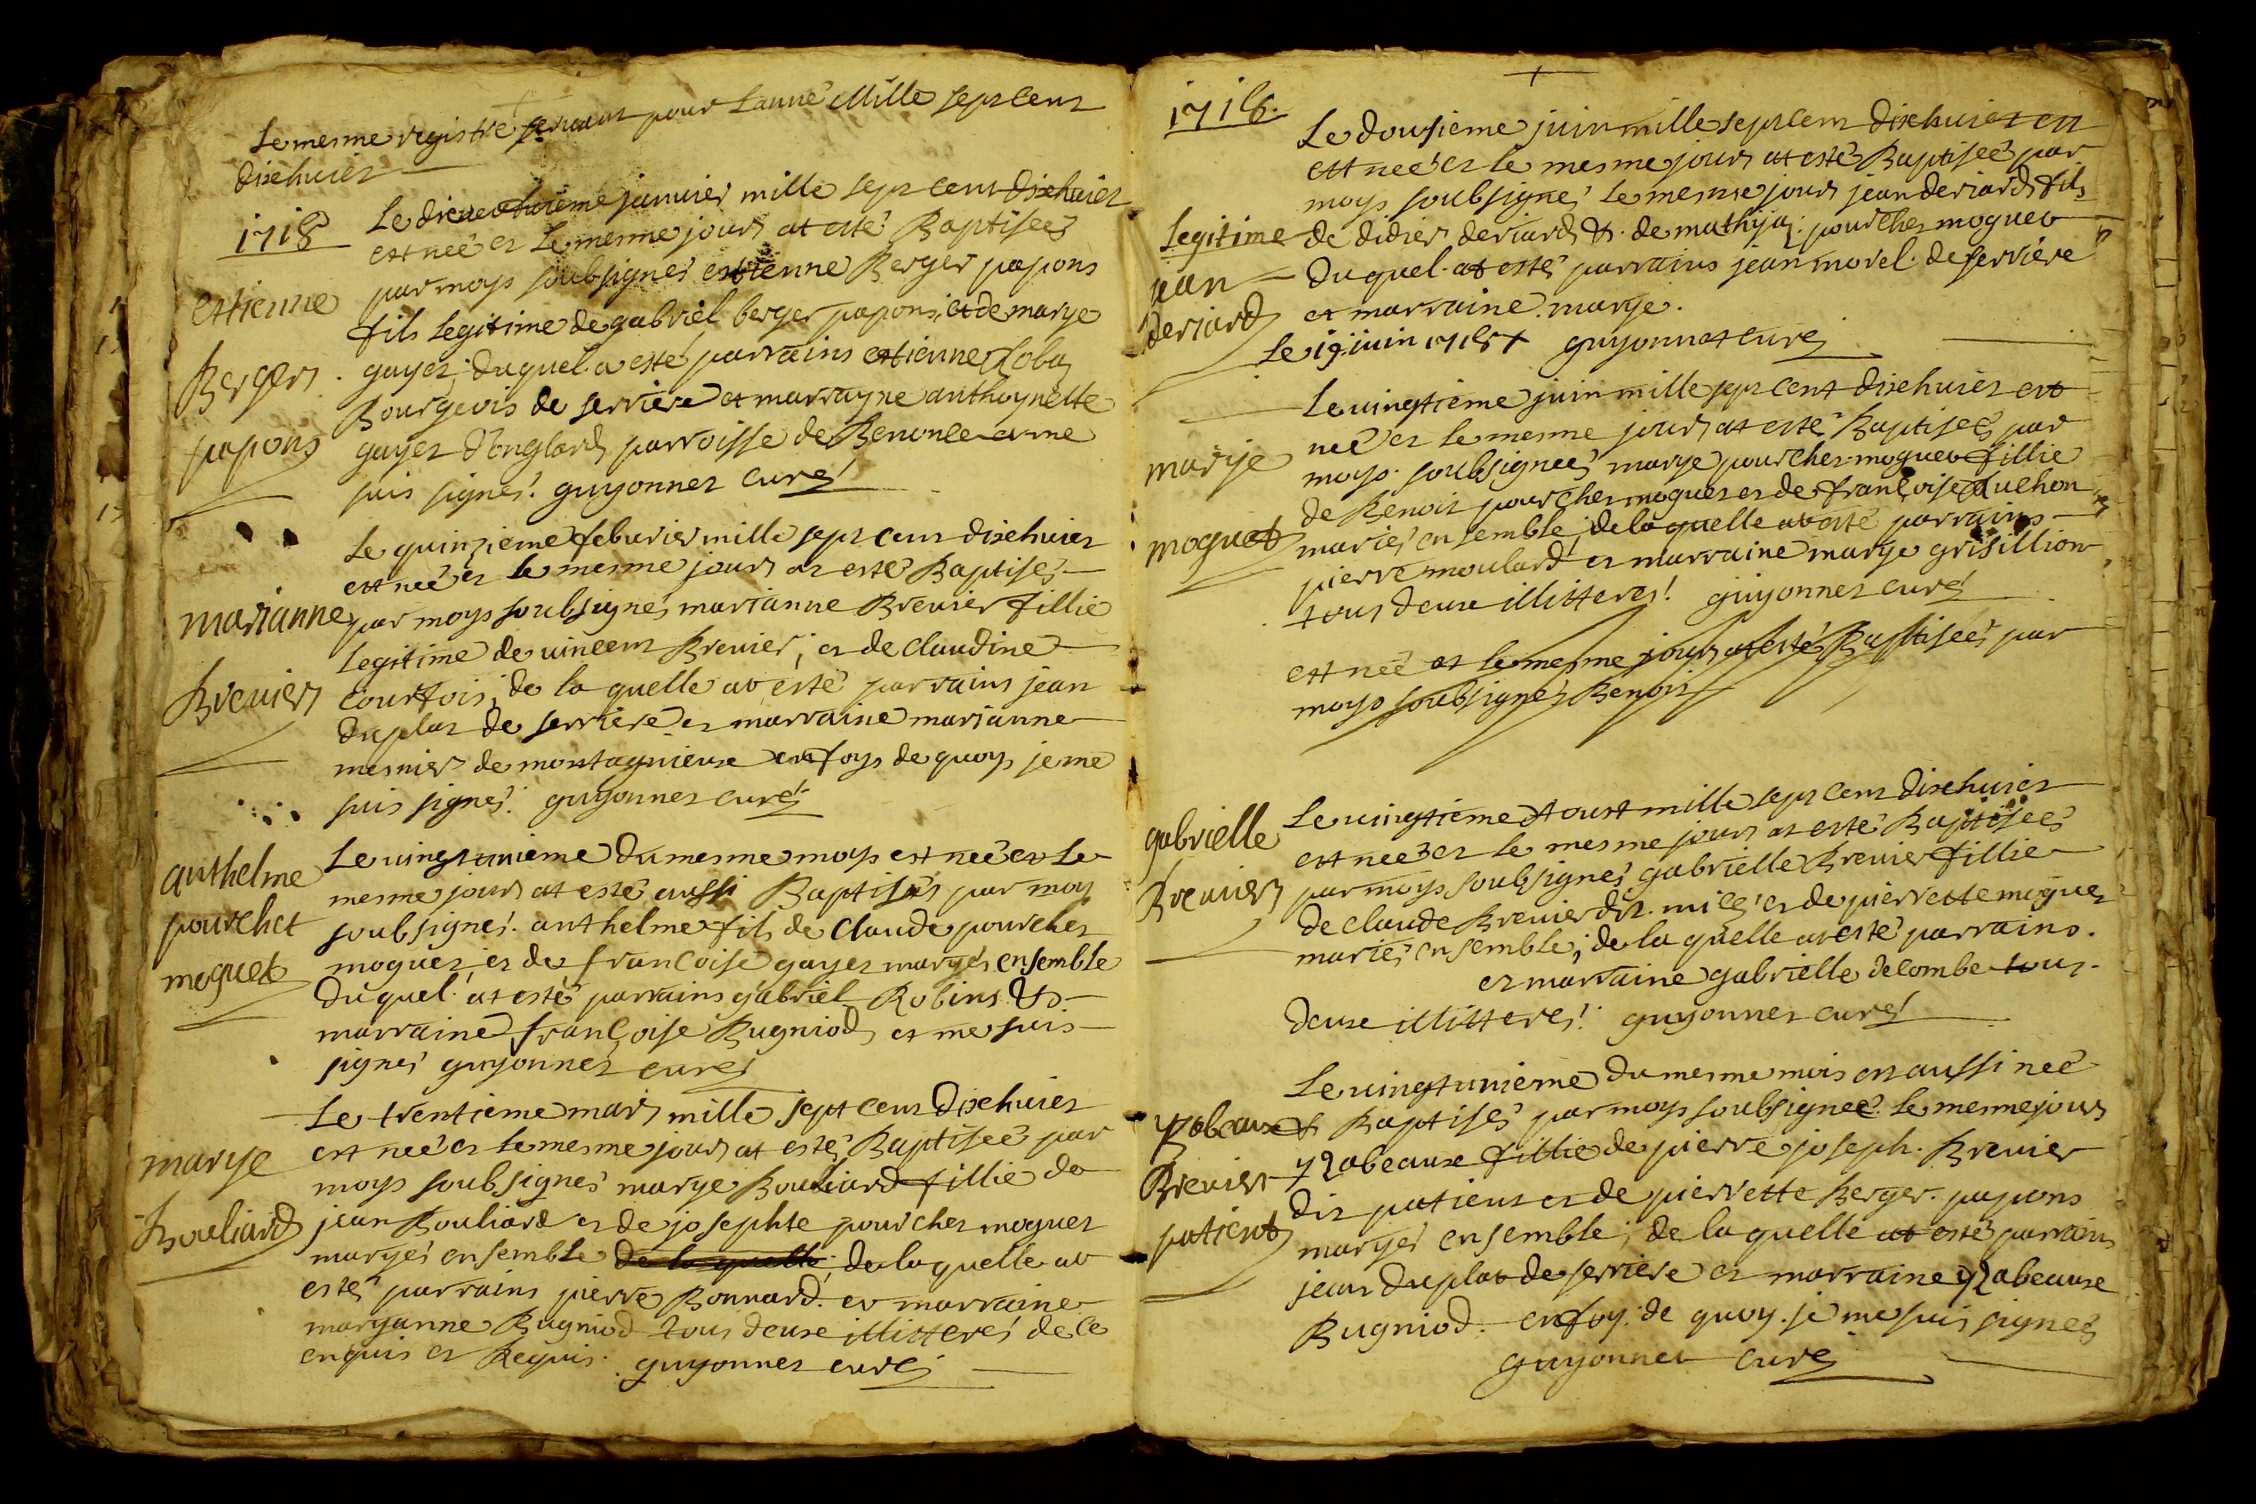 Le mesme registre servant pour Lanné Mille sept cent
dixehuict
1718
Le dixeneufvieme janvier mille sept cent dixehuict
est neé et Le mesme jour at esté Baptiseé
par moys soubsigné estienne Berger papons
fils Legitime de gabriel berger papons, et de marye
gayet, duquel a esté parrains estienne
Bourgeois de serriere et marrayne anthoynette
gayet d'onglard parroisse de Benonce et me
suis signé. guyonnet curé
estienne
Berger
papons
Le quinzieme febvrier mille sept cent dixehuict
est neé et Le mesme jour at esté Baptisé
par moys soubsigné marianne Brevier fillie
Legitime de vincent Brevier, et de Claudine
Courtois, de la quelle at esté parrains jean
duplat de serriere et marraine marianne
mesnier de montagnieux en foys de quoys je me
suis signé. guyonnet curé
marianne
Brevier
Le vingtunieme du mesme moys est neé et Le
mesme jour at esté aussi Baptisés par moy
soubsigné. anthelme fils de Claude pourchet
moguet, et de francoise gayet maryés ensemble
duquel at esté parrains gabriel Robins &
marraine françoise Bugniod et me suis
signé guyonnet curé
anthelme
pourchet
moguet
Le trentieme mars mille sept cent dixehuict
est neé et Le mesme jour at esté Baptiseé par
moys soubsigné marye Bouliard fillie de
jean Bouliard et de josephte pourchet moguet
maryés ensemble de la quelle, de la quelle at
esté parrains pierre Bonnard. et marraine
maryanne Bugniod tous deux illitteres de ce
enquis et Requis. guyonnet curé
marye
Bouliard
1718.
Le dousieme juin mille sept cent dixehuict est
est neé et le mesme jour at esté Baptiseé par
moys soubsigné Le mesme jour jean deriard fils
Legitime de didier deriard &. de mathya. pourchet moguet
duquel. at esté parrains jean morel. de serriere
et marraine. marye.
Le 19 juin 1718 + guyonnet curé
jean
deriard
Le vingtieme juin mille sept cent dixehuict est
neé et le mesme jour at esté Baptiseé par
moys. soubsigneé marye pourchet moguet fillie
de Benoit pourchet moguet et de françoise duchon
mariés ensemble, de la quelle at esté parrains
pierre moulard et marraine marye grisillion
tous deux illitteres! guyonnet curé
marye
moguet
est neé et le mesme jour at esté Baptiseé par
moys soubsigné Benoit
Le vingtieme Aoust mille sept cent dixehuict
est neé et le mesme jour at esté Baptiseé
par moys soubsigné gabrielle Brevier fillie
de Claude Brevier dit. et de pierrette moguet
mariés ensemble, de la quelle at esté parrains.
et marraine gabrielle decombe tous
deux illitteres! guyonnet curé
gabrielle
Brevier
Le vingtunieme du mesme mois est aussi neé
& Baptisés par moys soubsigneé. Le mesme jour
yzabeaux fillie de pierre joseph. Brevier
dit patient et de pierrette Berger. papons
maryés ensemble, de la quelle at esté parrains
jean duplat de serriere et marraine yzabeaux
Bugniod. en foy. de quoy. je me suis signé
guyonnet curé
yzabeaux
Brevier
patient